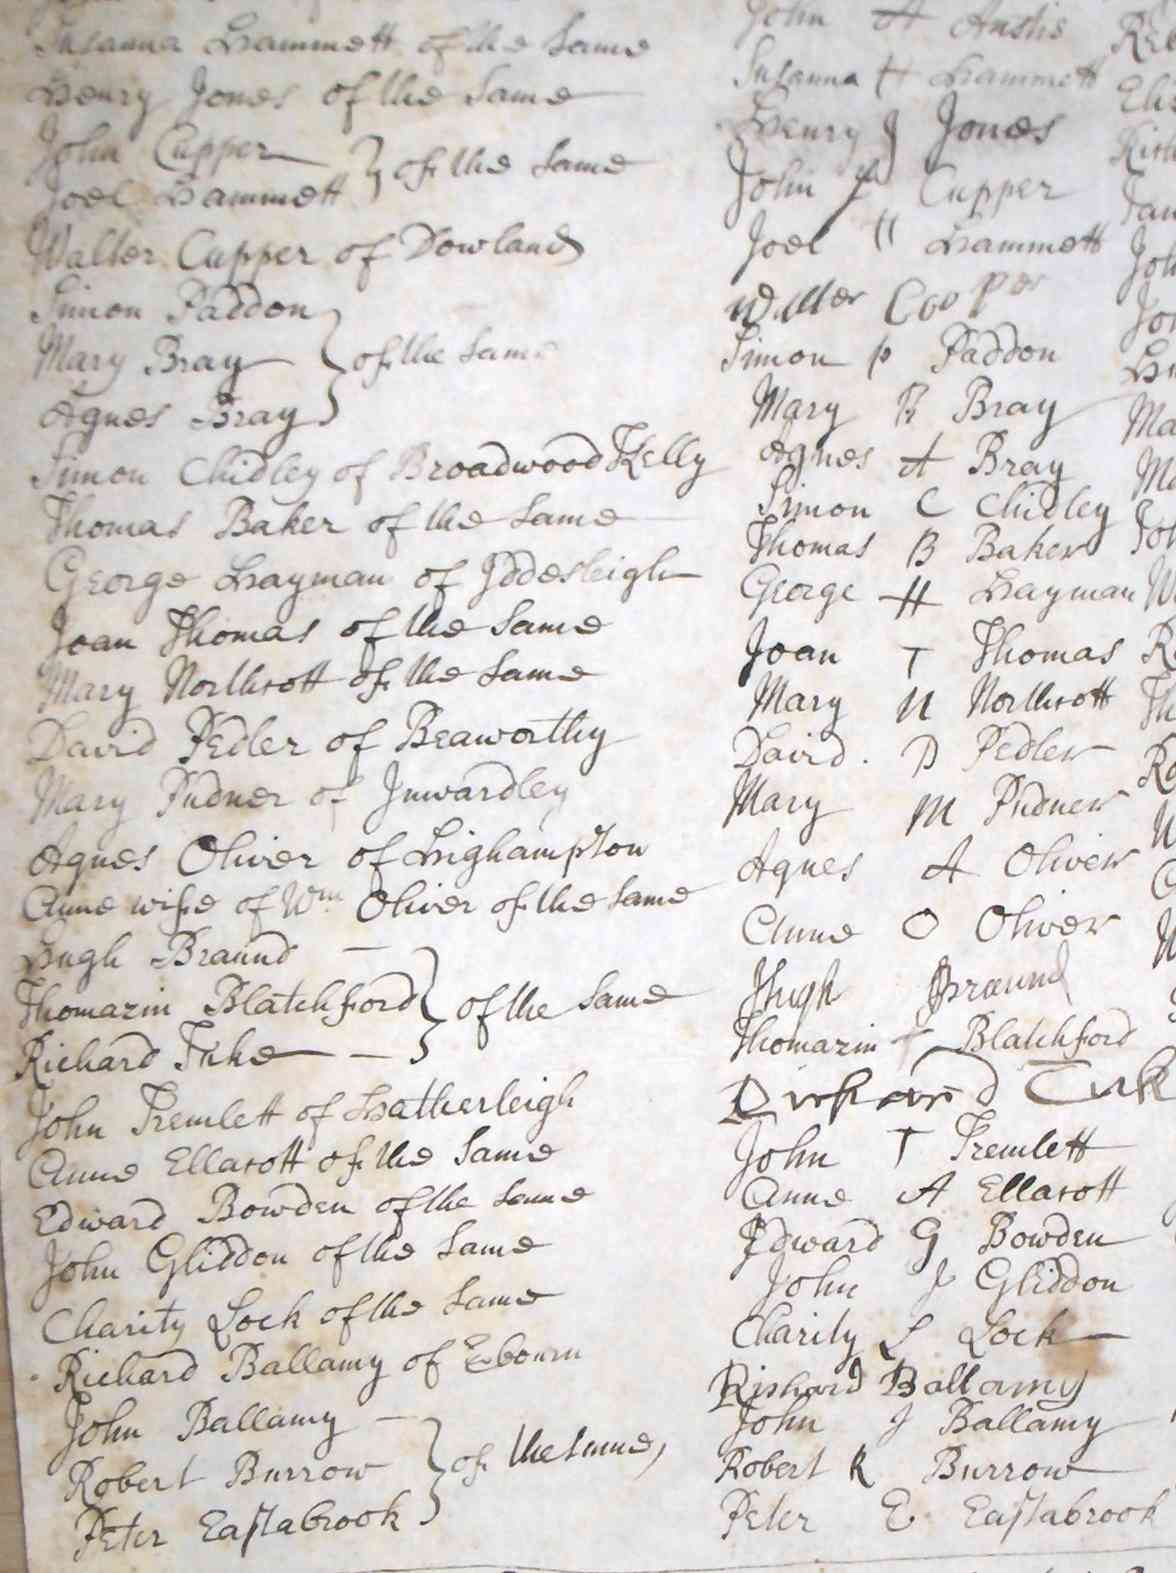 Susanna Hammett of the Same
Henry Jones of the Same
John Cupper
Joel Hammett } of the Same
Walter Cupper of Dowland
Simon Paddon
Mary Bray } of the Same
Agnes Bray
Simon Chidley of Broadwood Kelly
Thomas Baker of the Same
George Hayman of Iddesleigh
Joan Thomas of the Same
Mary Northcott of the Same
David Pedler of Beaworthy
Mary Pudner of Inwardley
Agnes Oliver of Highampton
Anne wife of Wm Oliver of the Same
Hugh Braund
Thomazin Blatchford } of the Same
Richard Tuke
John Tremlett of Hatherleigh
Anne Ellacott of the Same
Edward Bowden of the Same
John Gliddon of the Same
Charity Lock of the Same
Richard Ballamy of Exbourn
John Ballamy
Robert Burrow } of the Same,
Peter Eastabrook
John A Anstis
Susanna H Hammett
Henry J Jones
John Cupper
Joel H Hammett
Walter Cooper
Simon P Paddon
Mary B Bray
Agnes A Bray
Simon C Chidley
Thomas B Baker
George H Hayman
Joan T Thomas
Mary N Northcott
David D Pedler
Mary M Pudner
Agnes A Oliver
Anne O Oliver
Hugh Braund
Thomazin Blatchford
Richard Tuk
John T Tremlett
Anne A Ellacott
Edward G Bowden
John J Gliddon
Charity L Lock
Richard Ballamy
John J Ballamy
Robert R Burrow
Peter E Eastabrook